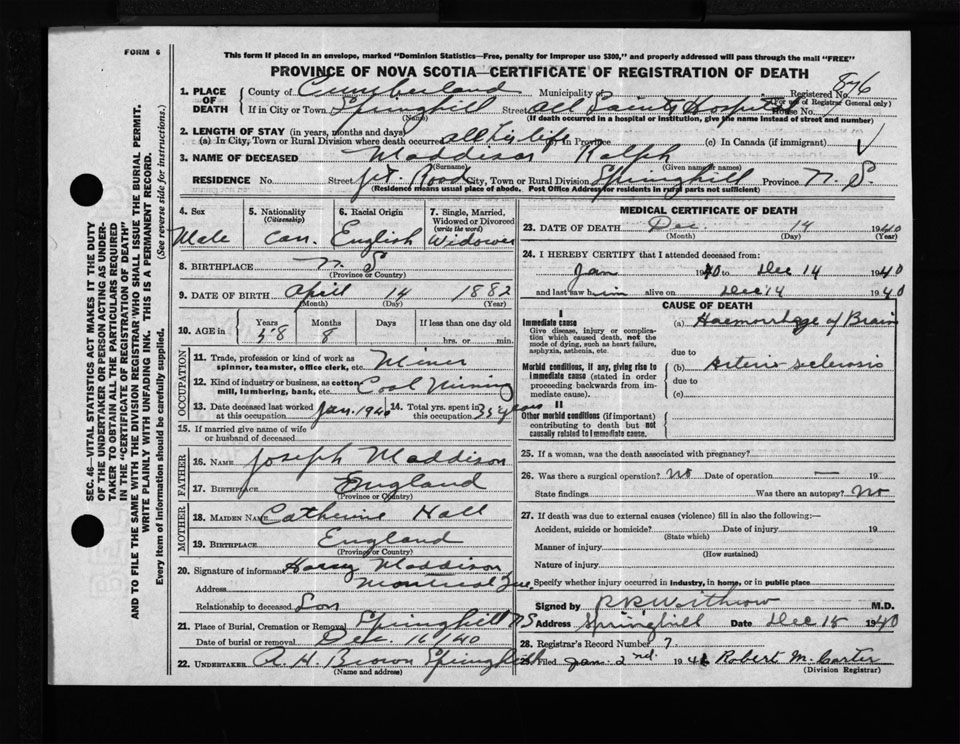 FORM 6
This form if placed in an envelope, marked "Dominion Statistics—Free, penalty for improper use $300," and properly addressed will pass through the mail "FREE"
PROVINCE OF NOVA SCOTIA—CERTIFICATE OF REGISTRATION OF DEATH
SEC. 46—VITAL STATISTICS ACT MAKES IT THE DUTY
OF THE UNDERTAKER OR PERSON ACTING AS UNDER-
TAKER TO OBTAIN ALL THE PARTICULARS REQUIRED
IN THE "CERTIFICATE OF REGISTRATION OF DEATH"
AND TO FILE THE SAME WITH THE DIVISION REGISTRAR WHO SHALL ISSUE THE BURIAL PERMIT.
WRITE PLAINLY WITH UNFADING INK. THIS IS A PERMANENT RECORD.
Every item of information should be carefully supplied. (See reverse side for instructions.)
1. PLACE OF DEATH County of Cumberland Municipality of Registered No. 876
(For use of Registrar General only)
If in City or Town Springhill Street All Saints Hospital House No.
(Name) (If death occurred in a hospital or institution, give the name instead of street and number)
2. LENGTH OF STAY (in years, months and days)
(a) In City, Town or Rural Division where death occurred all his life (b) In Province (c) In Canada (if immigrant)
3. NAME OF DECEASED Maddison Ralph
(Surname) (Given name or names)
RESIDENCE No. Street Jct. Road City, Town or Rural Division Springhill Province N. S.
(Residence means usual place of abode. Post Office Address for residents in rural parts not sufficient)
4. Sex 5. Nationality (Citizenship) 6. Racial Origin 7. Single, Married, Widowed or Divorced (write the word)
Male Can. English Widower
8. BIRTHPLACE N. S
(Province or Country)
9. DATE OF BIRTH April 14 1882
(Month) (Day) (Year)
10. AGE in Years Months Days If less than one day old
58 8 hrs. or min.
OCCUPATION
11. Trade, profession or kind of work as spinner, teamster, office clerk, etc. Miner
12. Kind of industry or business, as cotton mill, lumbering, bank, etc. Coal Mining
13. Date deceased last worked at this occupation Jan. 1940 14. Total yrs. spent in this occupation 35 years
15. If married give name of wife or husband of deceased
FATHER
16. NAME Joseph Maddison
17. BIRTHPLACE England
(Province or Country)
MOTHER
18. MAIDEN NAME Catherine Hall
19. BIRTHPLACE England
(Province or Country)
20. Signature of informant Harry Maddison
Address Montreal Que.
Relationship to deceased Son
21. Place of Burial, Cremation or Removal Springhill NS
Date of burial or removal Dec. 16/40
22. UNDERTAKER A. H. Brown Springhill
(Name and address)
MEDICAL CERTIFICATE OF DEATH
23. DATE OF DEATH Dec. 14 1940
(Month) (Day) (Year)
24. I HEREBY CERTIFY that I attended deceased from:
Jan 1940 to Dec 14 1940
and last saw him alive on Dec 14 1940
CAUSE OF DEATH
I
Immediate cause (a) Haemorrhage of Brain
Give disease, injury or complica-
tion which caused death, not the
mode of dying, such as heart failure,
asphyxia, asthenia, etc.
due to
Morbid conditions, if any, giving rise to (b) Arterio sclerosis
immediate cause (stated in order due to
proceeding backwards from im-
mediate cause). (c)
II
Other morbid conditions (if important)
contributing to death but not
causally related to immediate cause.
25. If a woman, was the death associated with pregnancy?
26. Was there a surgical operation? No Date of operation — 19
State findings Was there an autopsy? No
27. If death was due to external causes (violence) fill in also the following:—
Accident, suicide or homicide? Date of injury 19
(State which)
Manner of injury
(How sustained)
Nature of injury
Specify whether injury occurred in industry, in home, or in public place
Signed by M.D.
Address Springhill Date Dec 18 1940
28. Registrar's Record Number 7
29. Filed Jan. 2nd. 1941 Robert M. Carter
(Division Registrar)